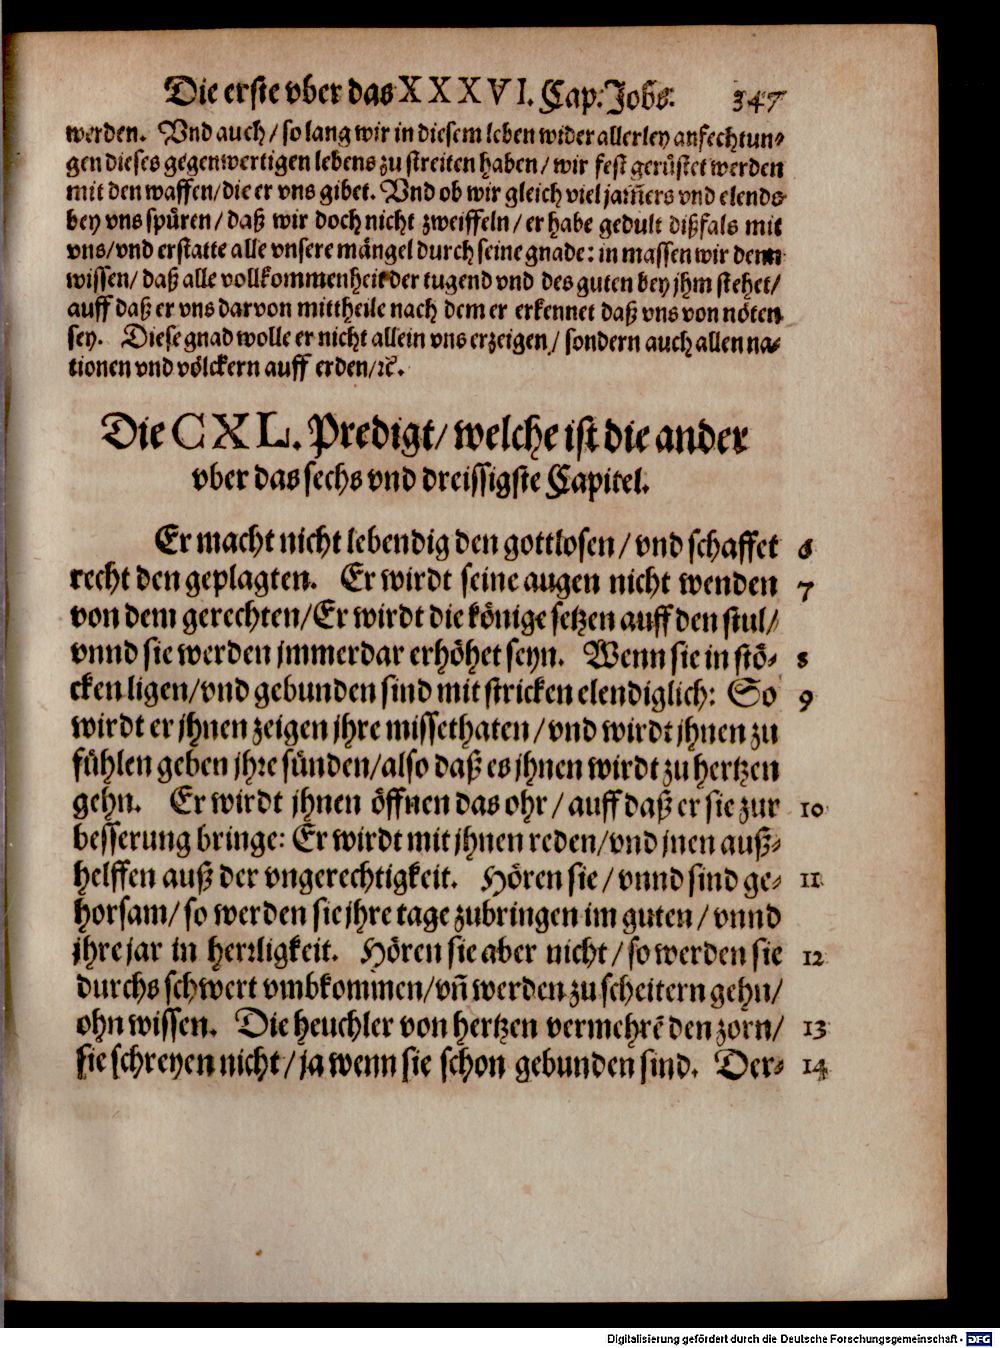 Die erste vber das XXXVI. Cap. Jobs. 347
werden. Vnd auch / so lang wir in diesem leben wider allerley anfechtun⸗
gen dieses gegenwertigen lebens zu streiten haben / wir fest gerüstet werden
mit den waffen / die er vns gibet. Vnd ob wir gleich viel jam̃ers vnd elends
bey vns spüren / daß wir doch nicht zweiffeln / er habe gedult dißfals mit
vns / vnd erstatte alle vnsere mängel durch seine gnade: in massen wir denn
wissen / daß alle vollkommenheit der tugend vnd des guten bey jhm stehet /
auff daß er vns darvon mittheile nach dem er erkennet daß vns von nöten
sey. Diese gnad wolle er nicht allein vns erzeigen / sondern auch allen na⸗
tionen vnd völckern auff erden / ꝛc.
Die CXL. Predigt / welche ist die ander
vber das sechs vnd dreissigste Capitel.
Er macht nicht lebendig den gottlosen / vnd schaffet 6
recht den geplagten. Er wirdt seine augen nicht wenden 7
von dem gerechten / Er wirdt die könige setzen auff den stul /
vnnd sie werden jmmerdar erhöhet seyn. Wenn sie in stö⸗ 8
cken ligen / vnd gebunden sind mit stricken elendiglich: So 9
wirdt er jhnen zeigen jhre missethaten / vnd wirdt jhnen zu
fühlen geben jhre sünden / also daß es jhnen wirdt zu hertzen
gehn. Er wirdt jhnen öffnen das ohr / auff daß er sie zur 10
besserung bringe: Er wirdt mit jhnen reden / vnd jnen auß⸗
helffen auß der vngerechtigkeit. Hören sie / vnnd sind ge⸗ 11
horsam / so werden sie jhre tage zubringen im guten / vnnd
jhre jar in herrligkeit. Hören sie aber nicht / so werden sie 12
durchs schwert vmbkommen / vñ werden zu scheitern gehn /
ohn wissen. Die heuchler von hertzen vermehrẽ den zorn / 13
sie schreyen nicht / ja wenn sie schon gebunden sind. Der⸗ 14
Digitalisierung gefördert durch die Deutsche Forschungsgemeinschaft - DFG